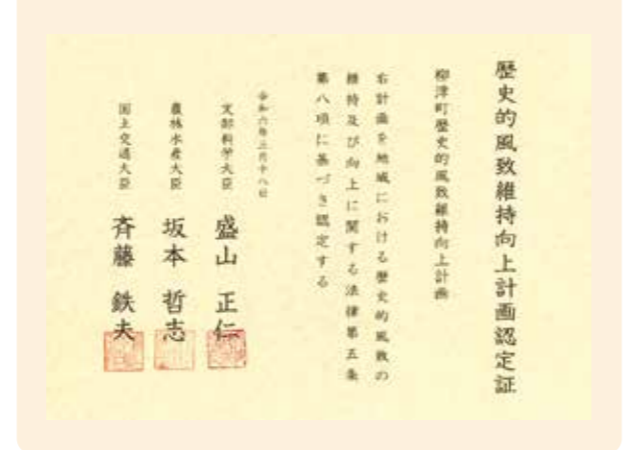 歴史的風致維持向上計画認定証
柳津町歴史的風致維持向上計画
右計画を地域における歴史的風致の
維持及び向上に関する法律第五条
第八項に基づき認定する
令和六年三月十八日
文部科学大臣 盛山 正仁
農林水産大臣 坂本 哲志
国土交通大臣 斉藤 鉄夫